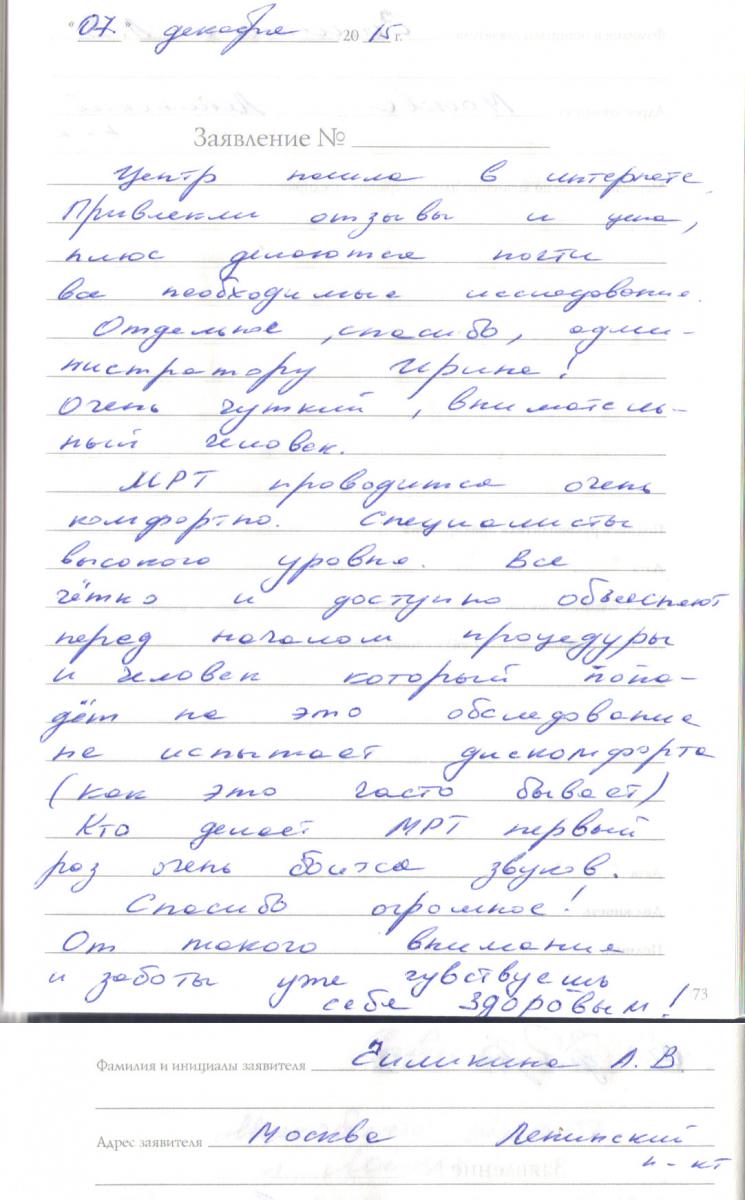 "07" декабря 2015 г.
Заявление №
Центр нашла в интернете.
Привлекли отзывы и цена,
плюс делаются почти
все необходимые исследования.
Отдельное, спасибо, адми-
нистратору Ирине!
Очень чуткий, вниматель-
ный человек.
МРТ проводится очень
комфортно. Специалисты
высокого уровня. Все
чётко и доступно объясняют
перед началом процедуры
и человек который попа-
дёт на это обследование
не испытает дискомфорта
(как это часто бывает)
Кто делает МРТ первый
раз очень боится звуков.
Спасибо огромное!
От такого внимания
и заботы уже чувствуешь
себя здоровым!
73
Фамилия и инициалы заявителя Чиликина А. В
Адрес заявителя Москва Ленинский
п-кт